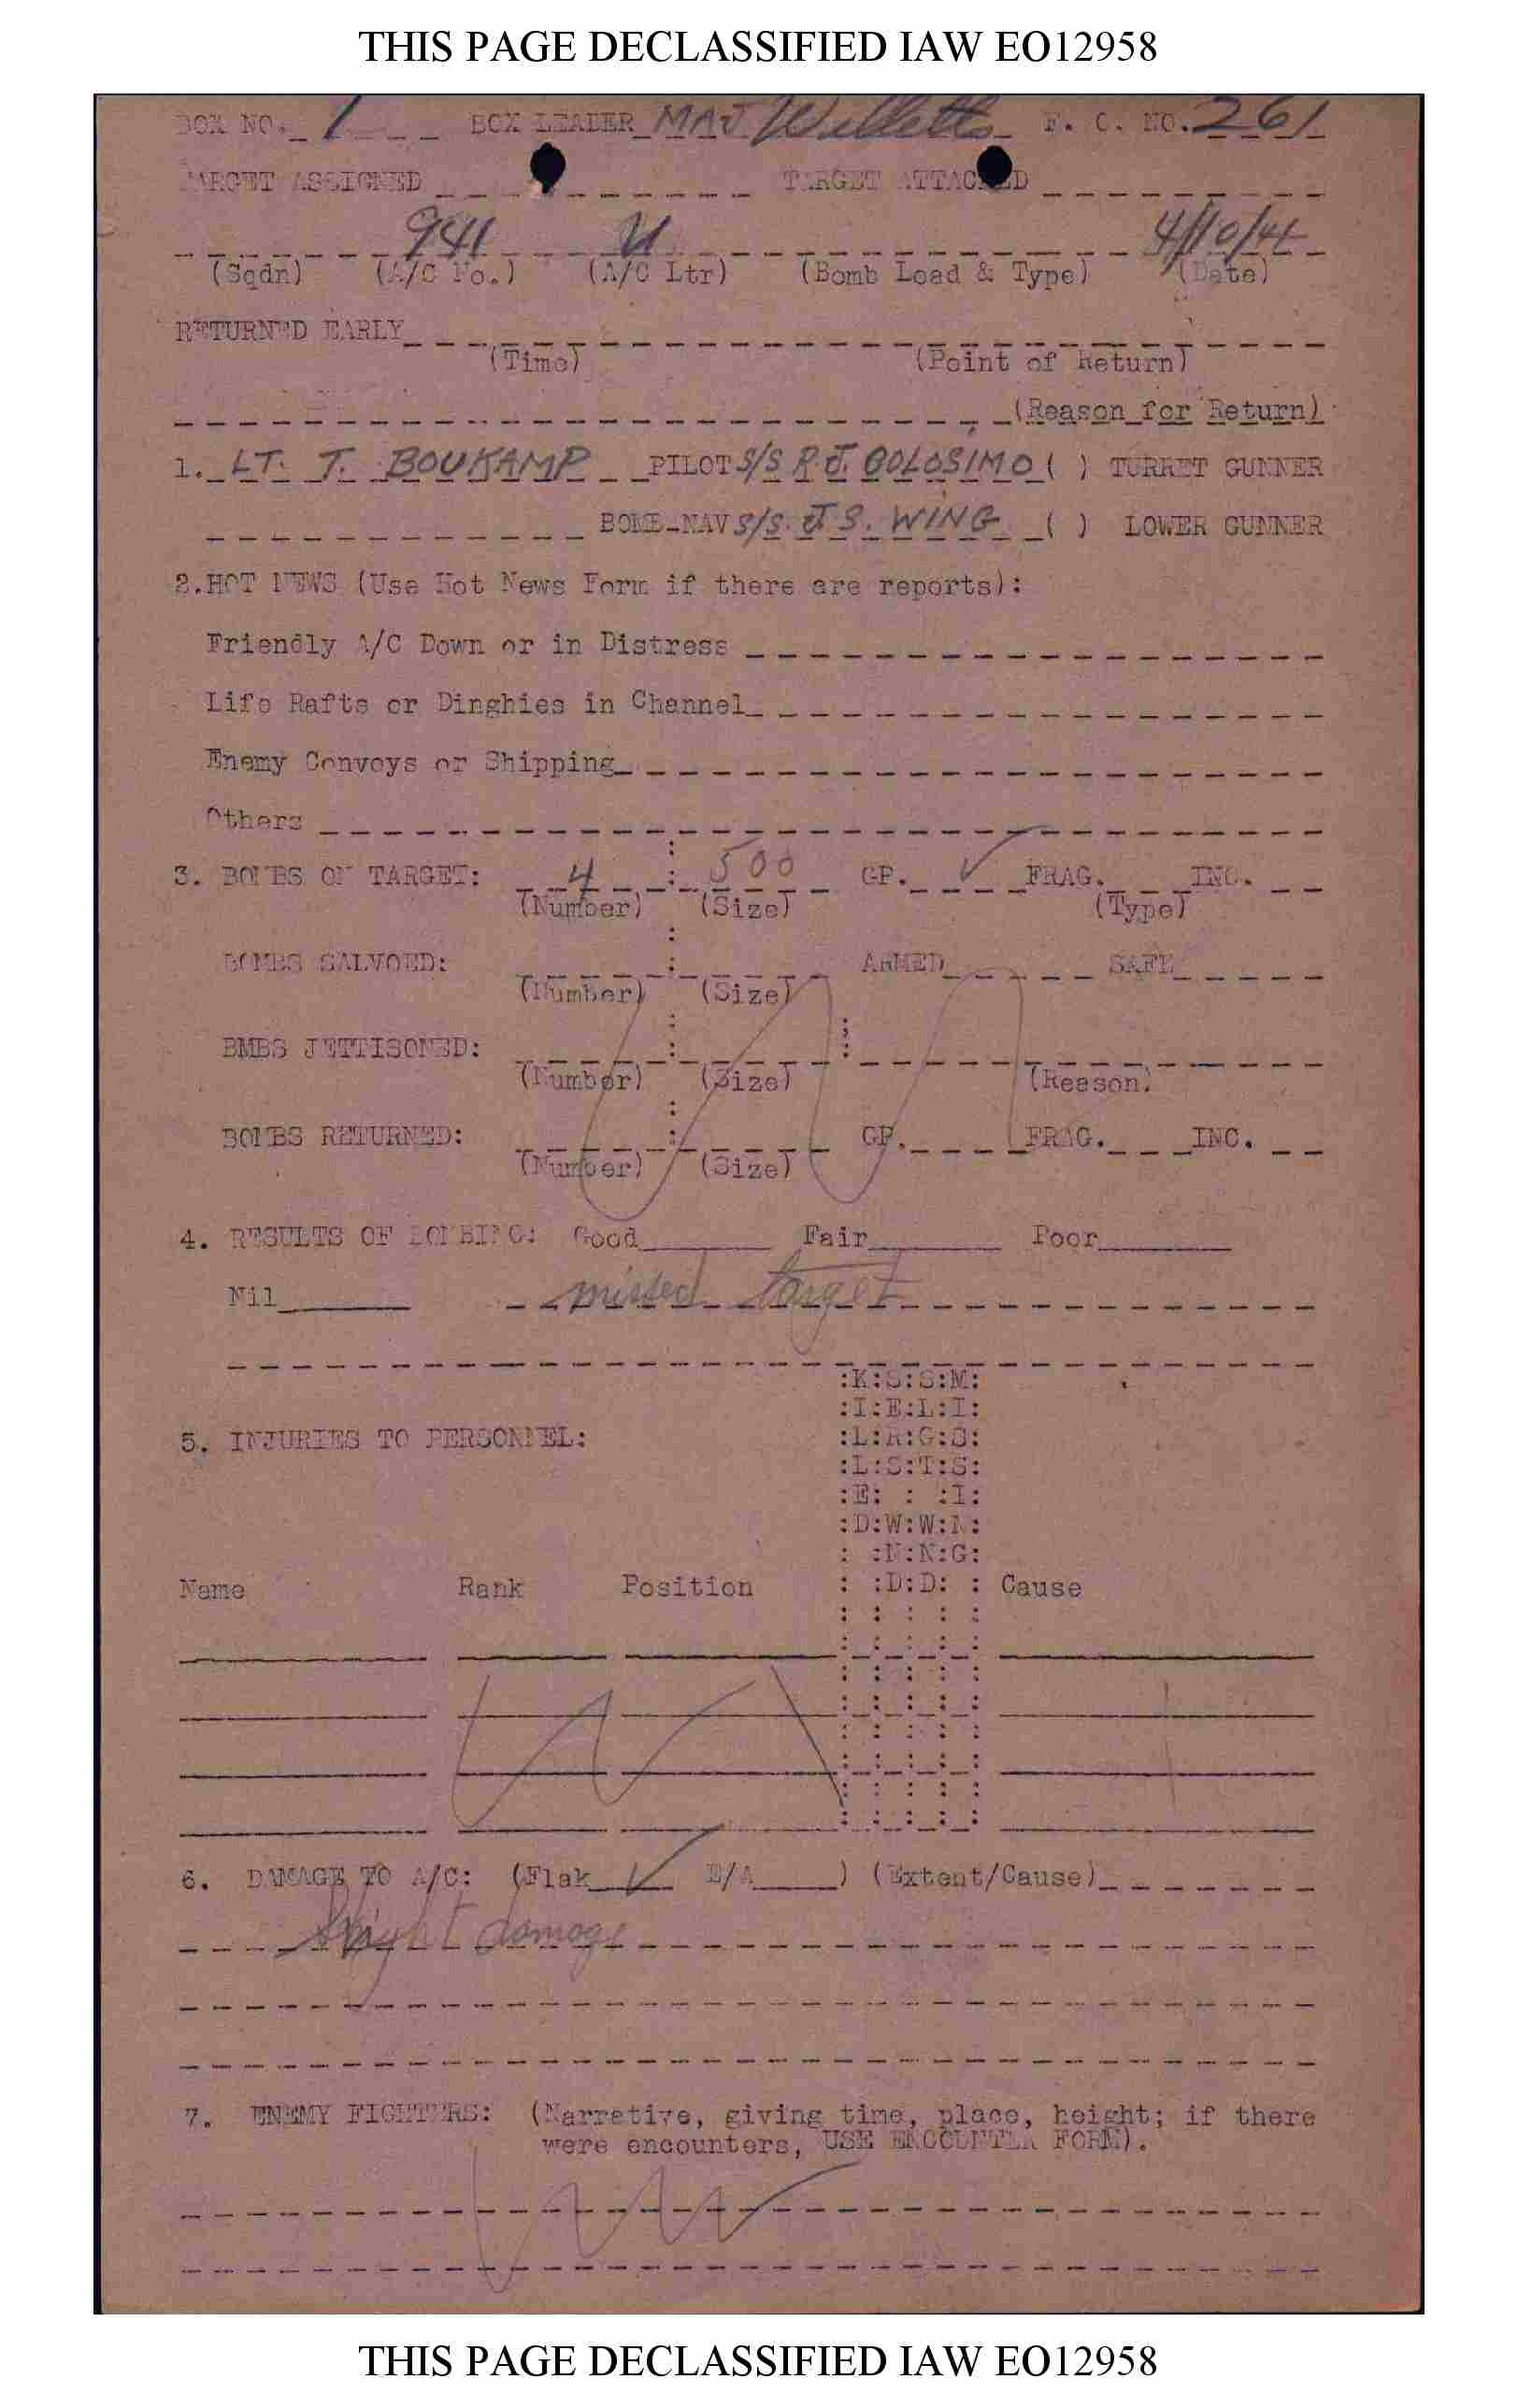 THIS PAGE DECLASSIFIED IAW EO12958
BOX NO. 1 BOX LEADER MAJ Willetts F. C. NO. 261
TARGET ASSIGNED TARGET ATTACKED
941 U 4/10/44
(Sqdn) (A/C No.) (A/C Ltr) (Bomb Load & Type) (Date)
RETURNED EARLY
(Time) (Point of Return)
(Reason for Return)
1. LT. T. BOUKAMP PILOT S/S R.J. COLOSIMO ( ) TURRET GUNNER
BOMB-NAV S/S. J S. WING ( ) LOWER GUNNER
2.HOT NEWS (Use Hot News Form if there are reports):
Friendly A/C Down or in Distress
Life Rafts or Dinghies in Channel
Enemy Convoys or Shipping
Others
3. BOMBS ON TARGET: 4 : 500 GP. ✓ FRAG. INC.
(Number) (Size) (Type)
BOMBS SALVOED: : ARMED SAFE
(Number) (Size)
BMBS JETTISONED: : :
(Number) (Size) (Reason)
BOMBS RETURNED: : GP. FRAG. INC.
(Number) (Size)
4. RESULTS OF BOMBING: Good Fair Poor
Nil missed target
:K:S:S:M:
:I:E:L:I:
5. INJURIES TO PERSONNEL: :L:R:G:S:
:L:S:T:S:
:E: : :I:
:D:W:W:N:
: :N:N:G:
Name Rank Position : :D:D: : Cause
6. DAMAGE TO A/C: (Flak ✓ E/A ) (Extent/Cause)
Slight damage
7. ENEMY FIGHTERS: (Narrative, giving time, place, height; if there
were encounters, USE ENCOUNTER FORM).
THIS PAGE DECLASSIFIED IAW EO12958